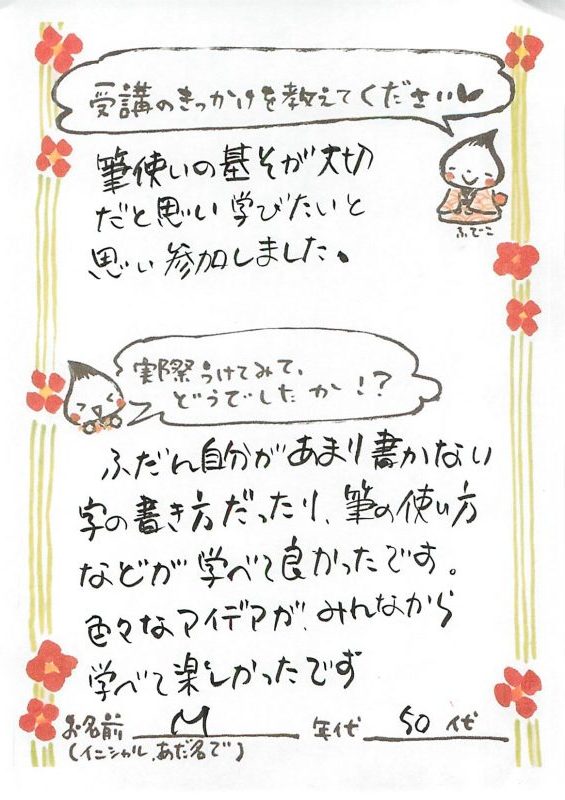 受講のきっかけを教えてください♥
筆使いの基そが大切
だと思い学びたいと
思い参加しました。
ふでこ
実際うけてみて、
どうでしたか!?
ふだん自分があまり書かない
字の書き方だったり、筆の使い方
などが学べて良かったです。
色々なアイデアが、みんなから
学べて楽しかったです
お名前 M 年代 50 代
(イニシャル、あだ名で)